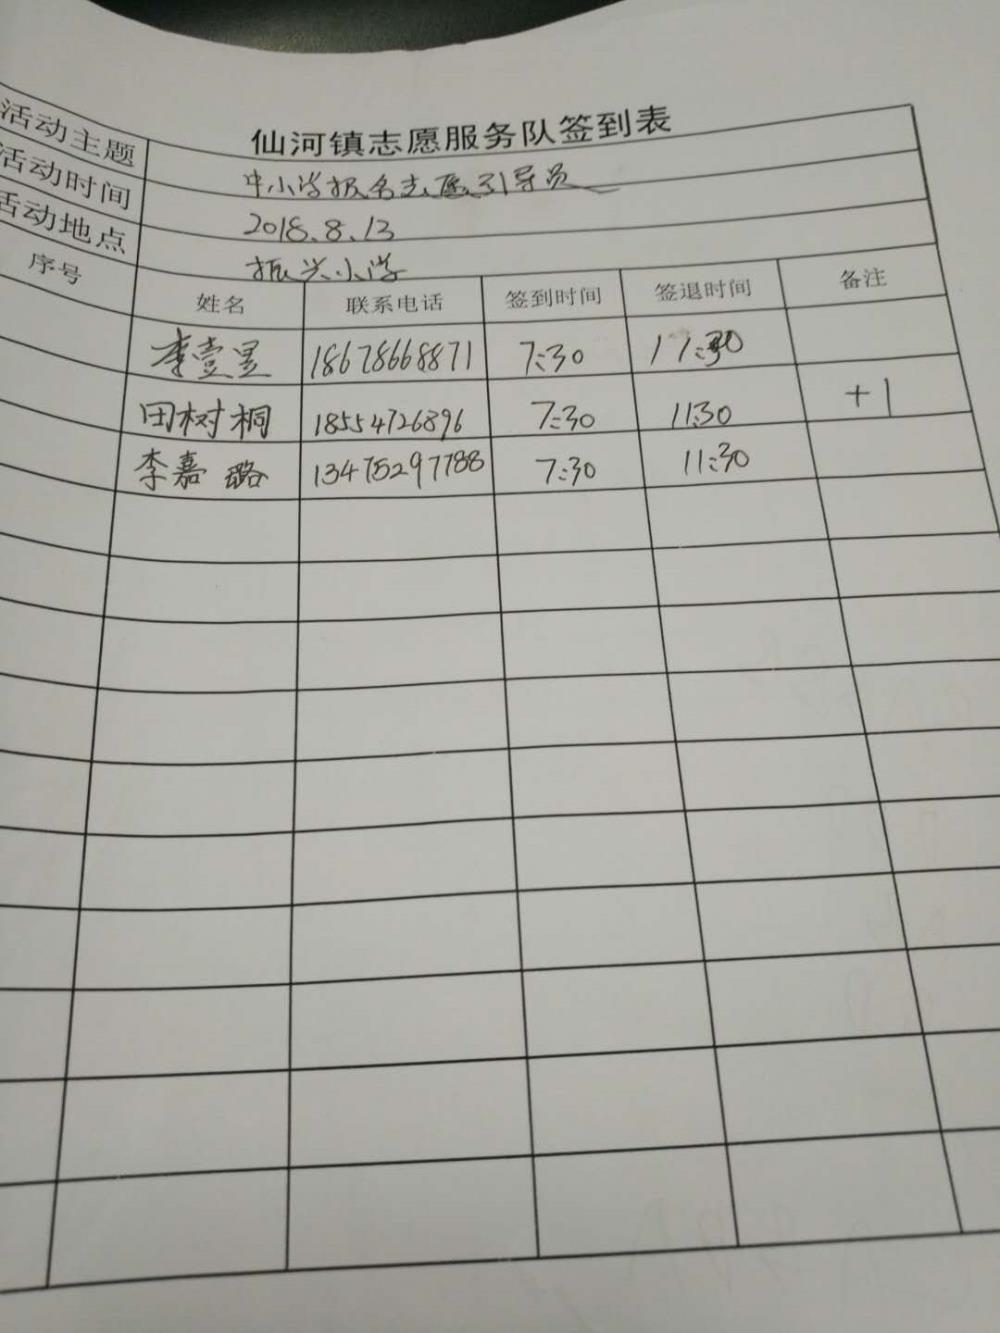 仙河镇志愿服务队签到表
活动主题 中小学报名志愿引导员
活动时间 2018.8.13
活动地点 振兴小学
序号 姓名 联系电话 签到时间 签退时间 备注
李壹昱 18678668871 7:30 11:30
田树桐 18554726896 7:30 11:30 +1
李嘉璐 13475297788 7:30 11:30